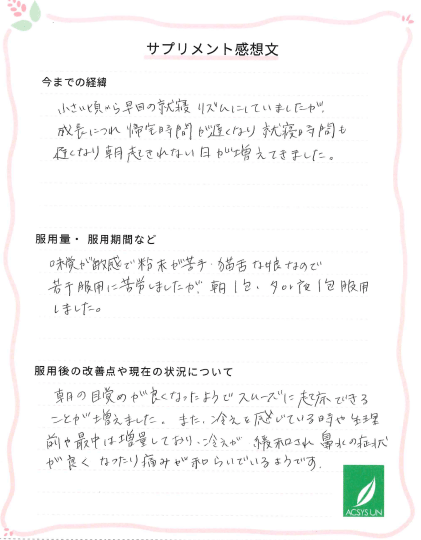 サプリメント感想文
今までの経緯
小さい頃から早目の就寝リズムにしていましたが、
成長につれ帰宅時間が遅くなり就寝時間も
遅くなり朝起きれない日が増えてきました。
服用量・服用期間など
味覚が敏感で粉末が苦手・猫舌な娘なので
若干服用に苦労しましたが、朝1包、夕or夜1包服用
しました。
服用後の改善点や現在の状況について
朝の目覚めが良くなったようでスムーズに起床できる
ことが増えました。また、冷えを感じている時や生理
前や最中は増量しており、冷えが緩和され鼻水の症状
が良くなったり痛みが和らいでいるようです。
ACSYSUN